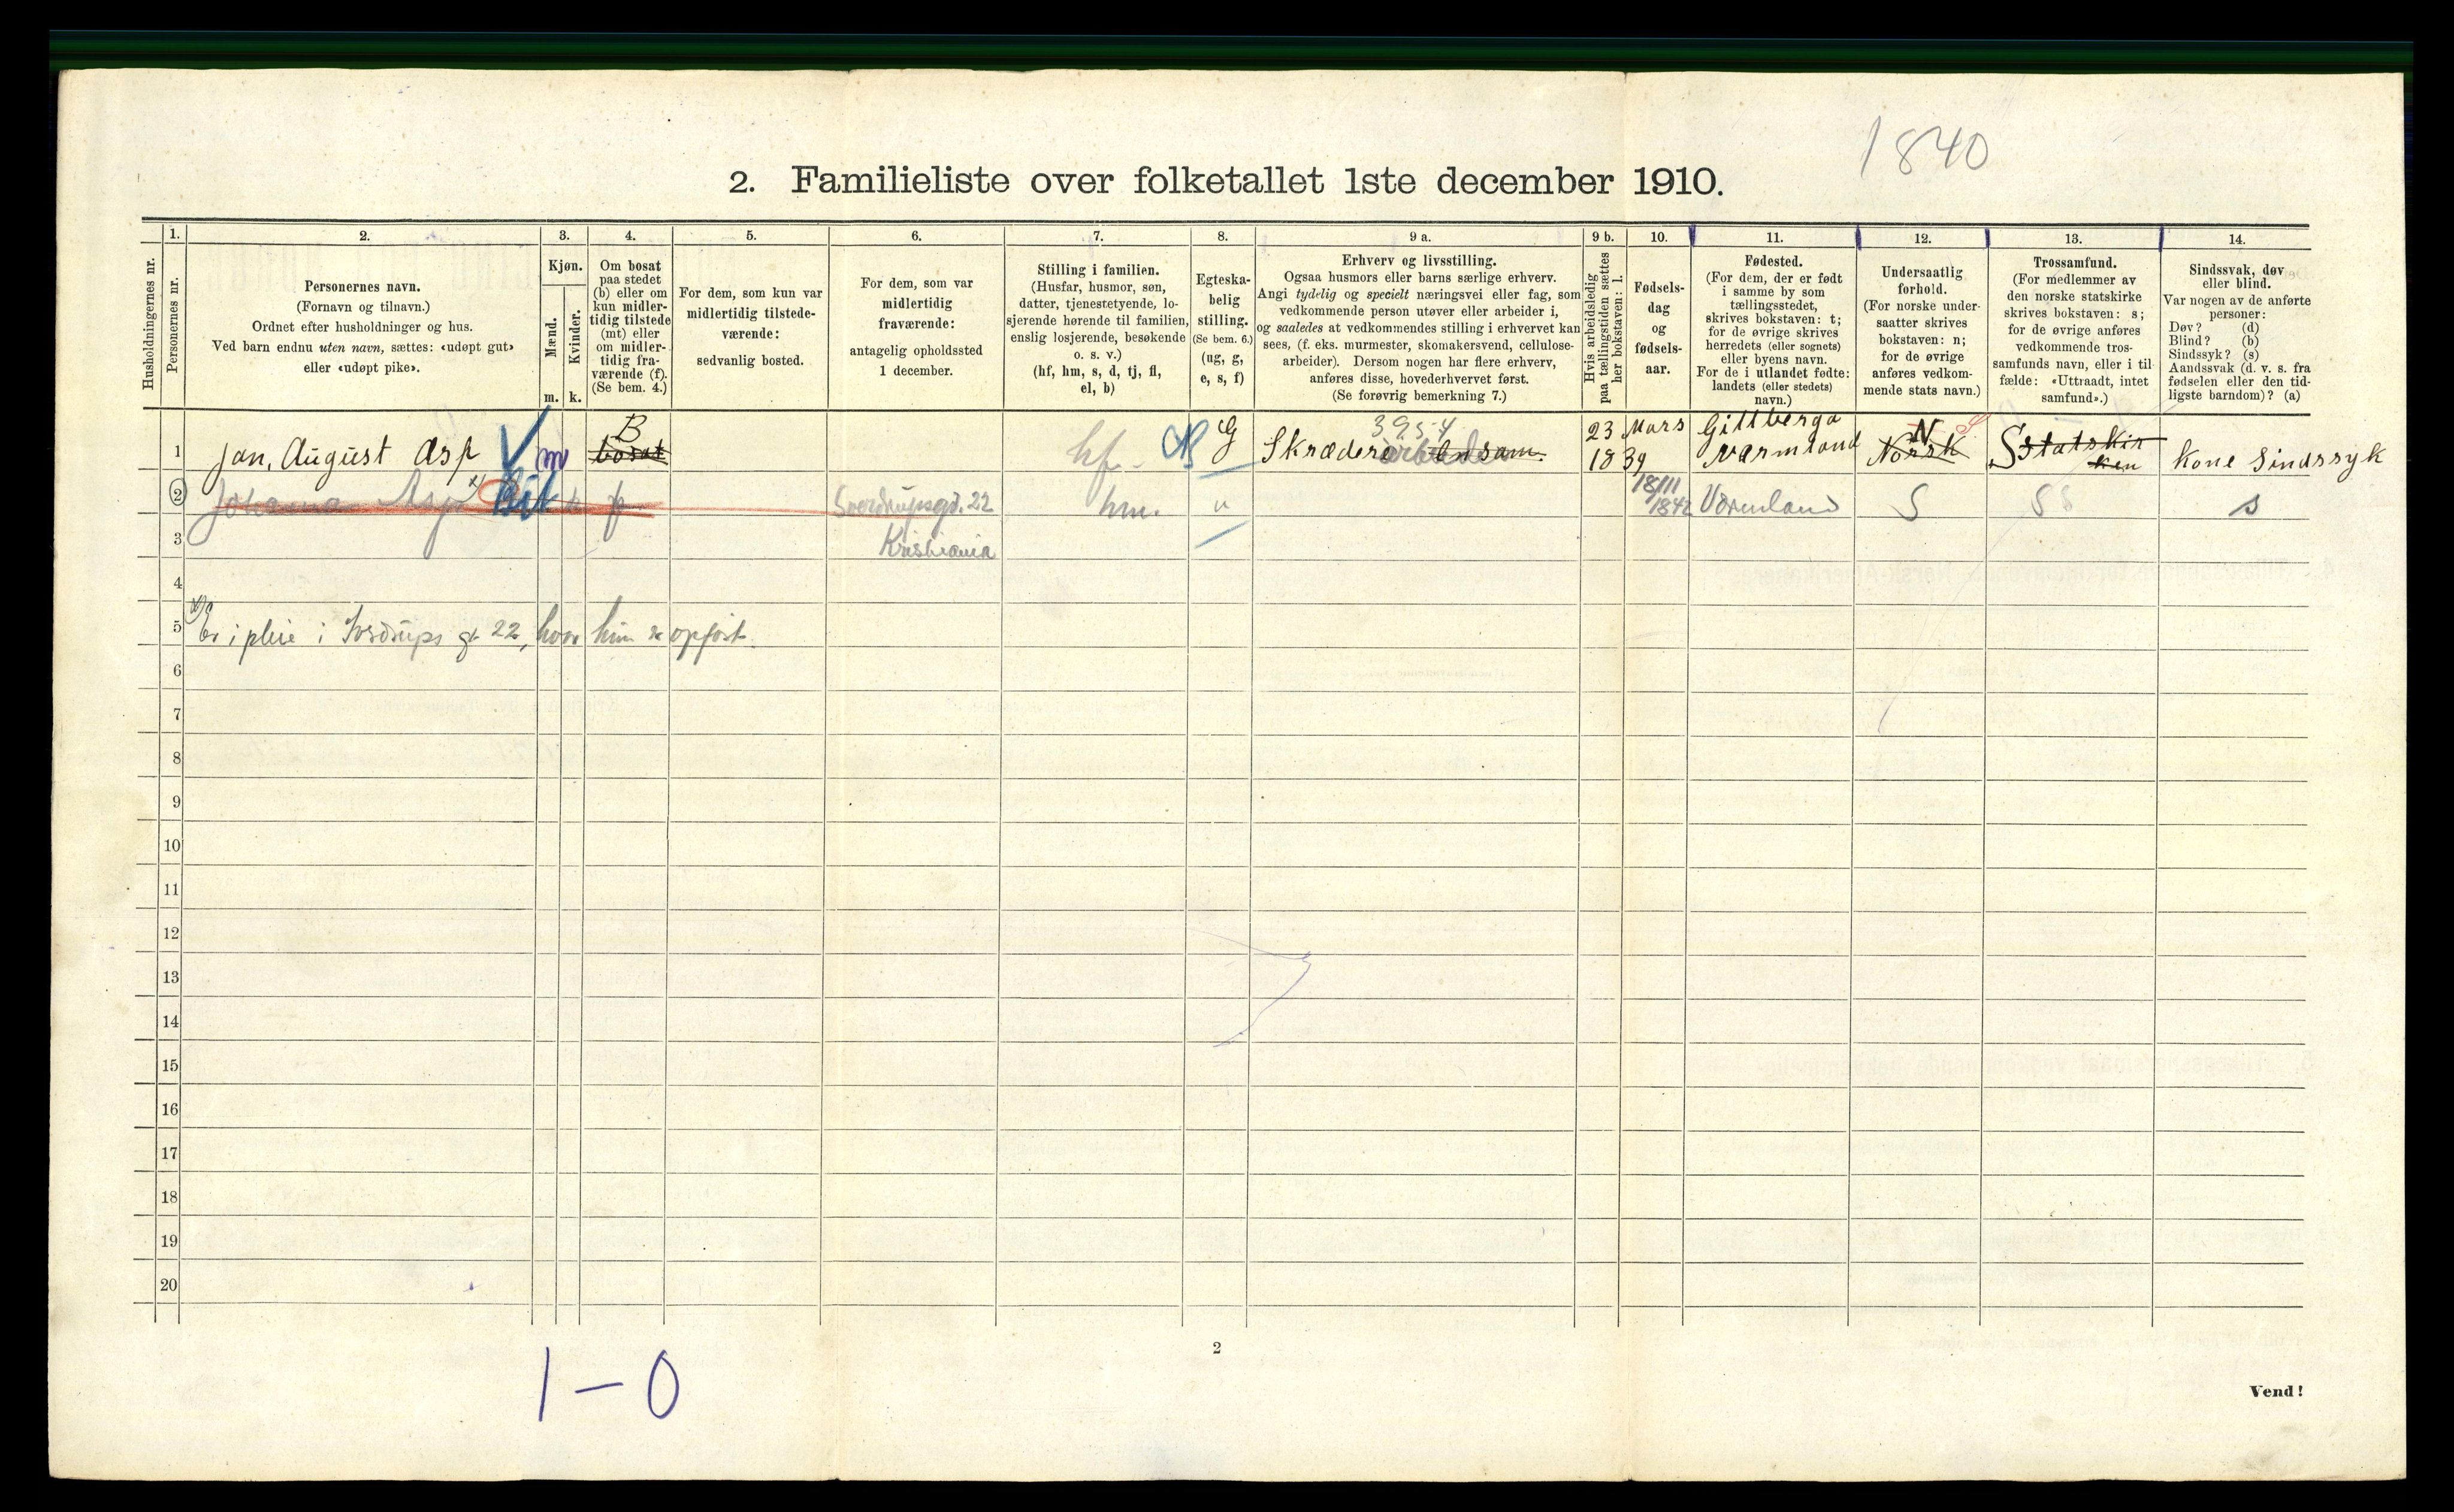 1840
2. Familieliste over folketallet 1ste december 1910.
1. 2. 3. 4. 5. 6. 7. 8. 9 a. 9 b. 10. 11. 12. 13. 14.
Husholdningernes nr.
Personernes nr.
Personernes navn.
(Fornavn og tilnavn.)
Ordnet efter husholdninger og hus.
Ved barn endnu uten navn, sættes: «udøpt gut»
eller «udøpt pike».
Kjøn.
Mænd.
Kvinder.
m. k.
Om bosat
paa stedet
(b) eller om
kun midler-
tidig tilstede
(mt) eller
om midler-
tidig fra-
værende (f).
(Se bem. 4.)
For dem, som kun var
midlertidig tilstede-
værende:
sedvanlig bosted.
For dem, som var
midlertidig
fraværende:
antagelig opholdssted
1 december.
Stilling i familien.
(Husfar, husmor, søn,
datter, tjenestetyende, lo-
sjerende hørende til familien,
enslig losjerende, besøkende
o. s. v.)
(hf, hm, s, d, tj, fl,
el, b)
Egteska-
belig
stilling.
(Se bem. 6.)
(ug, g,
e, s, f)
Erhverv og livsstilling.
Ogsaa husmors eller barns særlige erhverv.
Angi tydelig og specielt næringsvei eller fag, som
vedkommende person utøver eller arbeider i,
og saaledes at vedkommendes stilling i erhvervet kan
sees, (f. eks. murmester, skomakersvend, cellulose-
arbeider). Dersom nogen har flere erhverv,
anføres disse, hovederhvervet først.
(Se forøvrig bemerkning 7.)
Hvis arbeidsledig
paa tællingstiden sættes
her bokstaven: l.
Fødsels-
dag
og
fødsels-
aar.
Fødested.
(For dem, der er født
i samme by som
tællingsstedet,
skrives bokstaven: t;
for de øvrige skrives
herredets (eller sognets)
eller byens navn.
For de i utlandet fødte:
landets (eller stedets)
navn.)
Undersaatlig
forhold.
(For norske under-
saatter skrives
bokstaven: n;
for de øvrige
anføres vedkom-
mende stats navn.)
Trossamfund.
(For medlemmer av
den norske statskirke
skrives bokstaven: s;
for de øvrige anføres
vedkommende tros-
samfunds navn, eller i til-
fælde: «Uttraadt, intet
samfund».)
Sindssvak, døv
eller blind.
Var nogen av de anførte
personer:
Døv? (d)
Blind? (b)
Sindssyk? (s)
Aandssvak (d. v. s. fra
fødselen eller den tid-
ligste barndom)? (a)
B G 3954 23 Mars Gillberga N S
1 Jan, August Asp m bosat hf. Skrædere Ensam. 1839 Värmland Norsk S Statskir
ken Kone Sindssyk
2 Johanna Asp k f Sverdrupsgd. 22 hm. " 18/11 1842 Värmland S s
3 Kristiania
4
5 Er i pleie i Sverdrups gt 22, hvor hun er opført.
6
7
8
9
10
11
12
13
14
15
16
17
18
19
20
2
1 – 0
Vend!